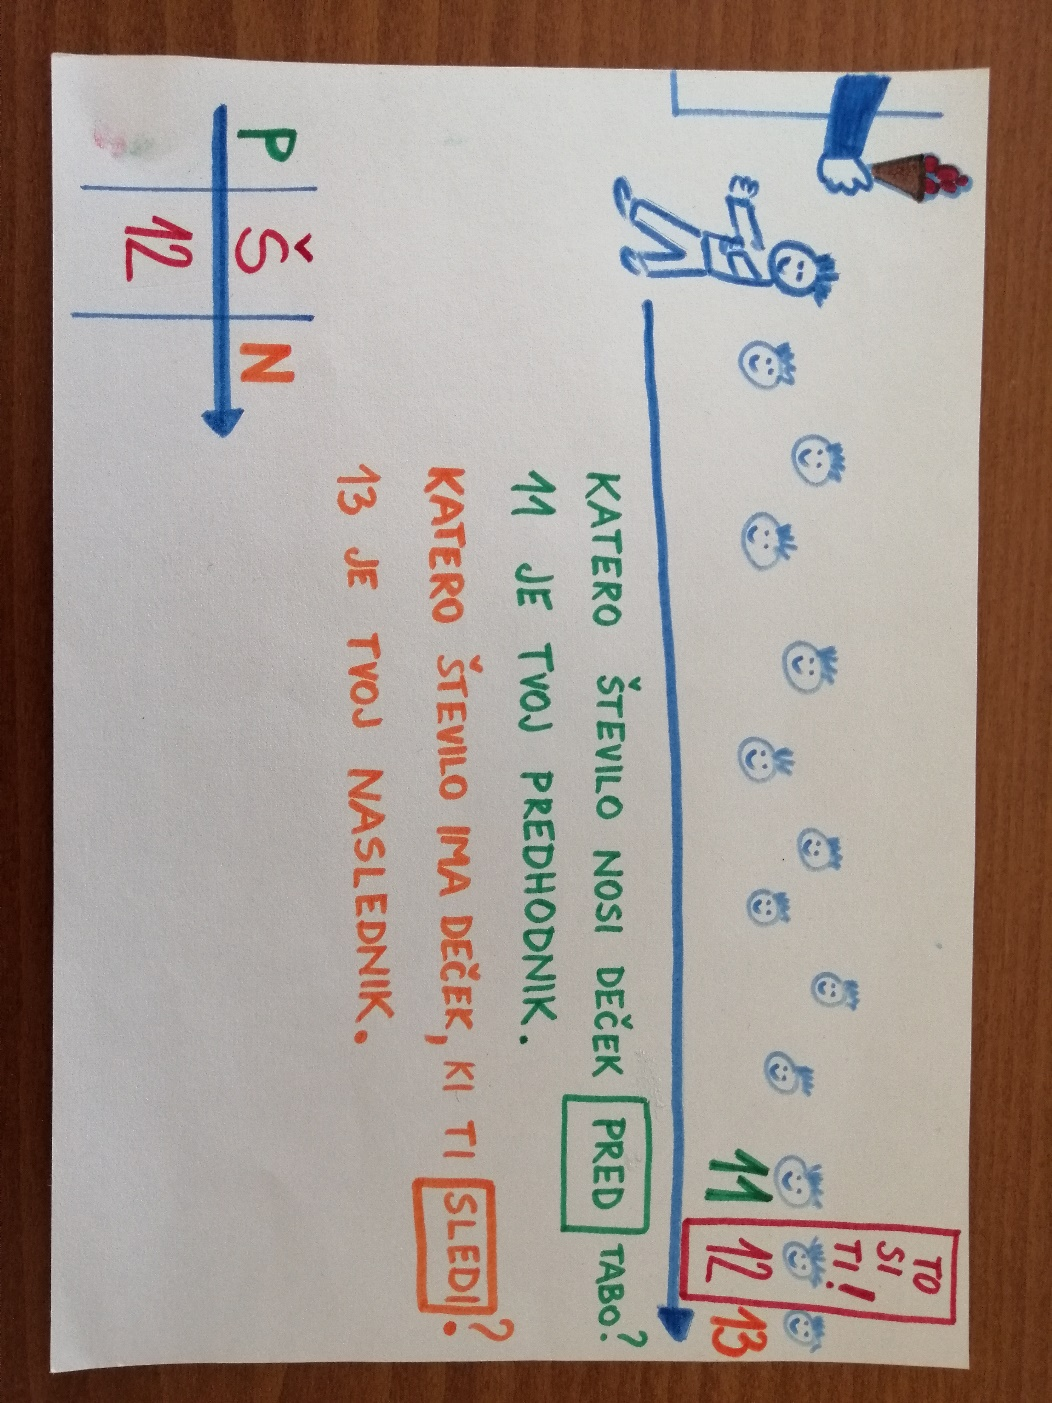 TO
SI
TI!
11 12 13
KATERO ŠTEVILO NOSI DEČEK PRED TABO?
11 JE TVOJ PREDHODNIK.
KATERO ŠTEVILO IMA DEČEK, KI TI SLEDI?
13 JE TVOJ NASLEDNIK.
P Š N
12